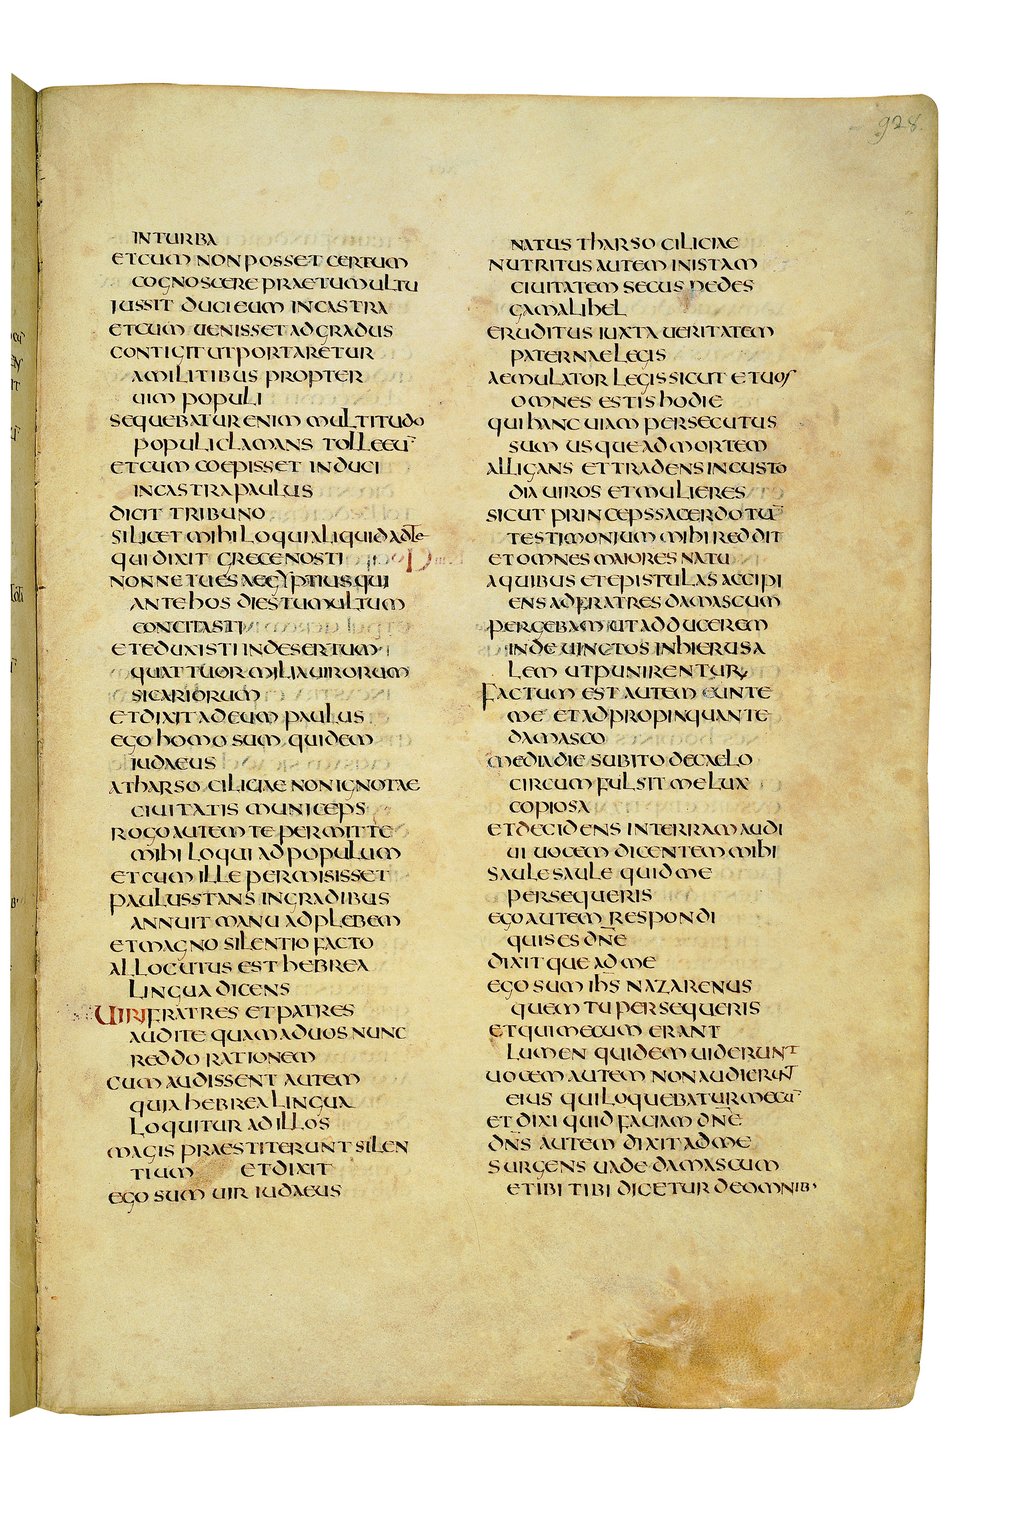 928.
IN TURBA
ET CUM NON POSSET CERTUM
COGNOSCERE PRAE TUMULTU
IUSSIT DUCI EUM IN CASTRA
ET CUM UENISSET AD GRADUS
CONTIGIT UT PORTARETUR
A MILITIBUS PROPTER
UIM POPULI
SEQUEBATUR ENIM MULTITUDO
POPULI CLAMANS TOLLE EU̅
ET CUM COEPISSET INDUCI
IN CASTRA PAULUS
DICIT TRIBUNO
SI LICET MIHI LOQUI ALIQUID AD TE
QUI DIXIT GRECE NOSTI
NONNE TU ES AEGYPTIUS QUI
ANTE HOS DIES TUMULTUM
CONCITASTI
ET EDUXISTI IN DESERTUM
QUATTUOR MILIA UIRORUM
SICARIORUM
ET DIXIT AD EUM PAULUS
EGO HOMO SUM QUIDEM
IUDAEUS
A THARSO CILICIAE NON IGNOTAE
CIUITATIS MUNICEPS
ROGO AUTEM TE PERMITTE
MIHI LOQUI AD POPULUM
ET CUM ILLE PERMISISSET
PAULUS STANS IN GRADIBUS
ANNUIT MANU AD PLEBEM
ET MAGNO SILENTIO FACTO
ALLOCUTUS EST HEBREA
LINGUA DICENS
UIRI FRATRES ET PATRES
AUDITE QUAM AD UOS NUNC
REDDO RATIONEM
CUM AUDISSENT AUTEM
QUIA HEBREA LINGUA
LOQUITUR AD ILLOS
MAGIS PRAESTITERUNT SILEN
TIUM ET DIXIT
EGO SUM UIR IUDAEUS
NATUS THARSO CILICIAE
NUTRITUS AUTEM IN ISTAM
CIUITATEM SECUS PEDES
GAMALIHEL
ERUDITUS IUXTA UERITATEM
PATERNAE LEGIS
AEMULATOR LEGIS SICUT ET UOS
OMNES ESTIS HODIE
QUI HANC UIAM PERSECUTUS
SUM USQUE AD MORTEM
ALLIGANS ET TRADENS IN CUSTO
DIA UIROS ET MULIERES
SICUT PRINCEPS SACERDOTU̅
TESTIMONIUM MIHI REDDIT
ET OMNES MAIORES NATU
A QUIBUS ET EPISTULAS ACCIPI
ENS AD FRATRES DAMASCUM
PERGEBAM UT ADDUCEREM
INDE UINCTOS IN HIERUSA
LEM UT PUNIRENTUR
FACTUM EST AUTEM EUNTE
ME ET ADPROPINQUANTE
DAMASCO
MEDIA DIE SUBITO DE CAELO
CIRCUMFULSIT ME LUX
COPIOSA
ET DECIDENS IN TERRAM AUDI
UI UOCEM DICENTEM MIHI
SAULE SAULE QUID ME
PERSEQUERIS
EGO AUTEM RESPONDI
QUIS ES DN̅E
DIXITQUE AD ME
EGO SUM IH̅S NAZARENUS
QUEM TU PERSEQUERIS
ET QUI MECUM ERANT
LUMEN QUIDEM UIDERUNT
UOCEM AUTEM NON AUDIERUNT
EIUS QUI LOQUEBATUR MECU̅
ET DIXI QUID FACIAM DN̅E
DN̅S AUTEM DIXIT AD ME
SURGENS UADE DAMASCUM
ET IBI TIBI DICETUR DE OMNIB'